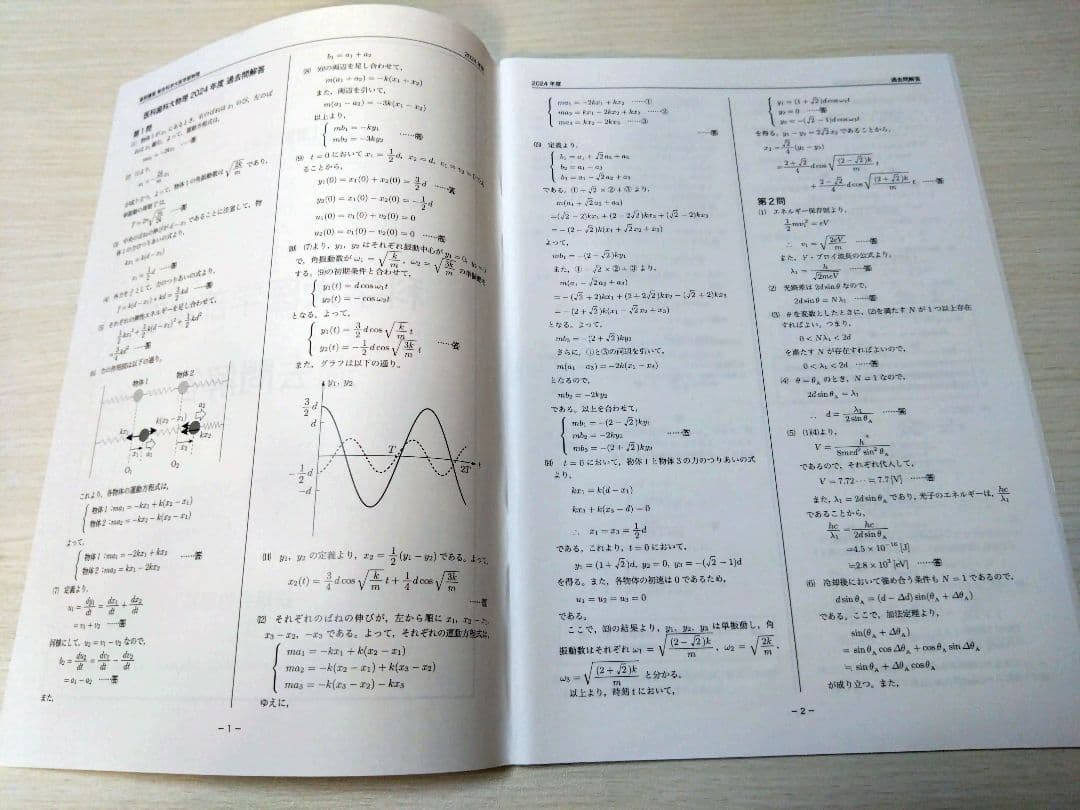 医科歯科大物理 2024 年度 過去問解答
2024 年度
第1問
a₁ = −(2k/m)x₁
x₁ = (1/2)d ……答
(5) それぞれの弾性エネルギーを足し合わせて,
(1/2)kx₁² + (1/2)k(d−x₁)² + (1/2)kd²
力の作用図は以下の通り。
物体1 物体2
kx₁ k(x₂ − x₁) a₁ a₂ kx₂
x₁ x₂
O₁ O₂
これより, 各物体の運動方程式は,
物体1 : ma₁ = −kx₁ + k(x₂ − x₁)
物体2 : ma₂ = −kx₂ − k(x₂ − x₁)
よって,
物体1 : ma₁ = −2kx₁ + kx₂ ……答
物体2 : ma₂ = kx₁ − 2kx₂
(7) 定義より,
u₁ = dy₁/dt = dx₁/dt + dx₂/dt
= v₁ + v₂ ……答
同様にして, u₂ = v₁ − v₂ なので,
b₂ = du₂/dt = dv₁/dt − dv₂/dt
= a₁ − a₂ ……答
また,
b₁ = a₁ + a₂
(8) 式の両辺を足し合わせて,
m(a₁ + a₂) = −k(x₁ + x₂)
また, 両辺を引いて,
m(a₁ − a₂) = −3k(x₁ − x₂)
以上より,
mb₁ = −ky₁
mb₂ = −3ky₂ ……答
(9) t = 0 において x₁ = (1/2)d, x₂ = d, v₁ = v₂ =
ることから,
y₁(0) = x₁(0) + x₂(0) = (3/2)d
y₂(0) = x₁(0) − x₂(0) = −(1/2)d
u₁(0) = v₁(0) + v₂(0) = 0
u₂(0) = v₁(0) − v₂(0) = 0 ……答
(10) (7)より, y₁, y₂ はそれぞれ振動中心が
で, 角振動数が ω₁ = √(k/m), ω₂ = √(3k/m) の単振動を
する。(9)の初期条件と合わせて,
y₁(t) = d cos ω₁t
y₂(t) = − cos ω₂t
となる。よって,
y₁(t) = (3/2)d cos √(k/m) t
y₂(t) = −(1/2)d cos √(3k/m) t ……答
また, グラフは以下の通り。
y₁, y₂
(3/2)d
−(1/2)d
−d
T 2T t
(11) y₁, y₂ の定義より, x₂ = (1/2)(y₁ − y₂) である。よって,
x₂(t) = (3/4)d cos √(k/m) t + (1/4)d cos √(3k/m) t
……答
(12) それぞれのばねの伸びが, 左から順に x₁, x₂ − x₁,
x₃ − x₂, −x₃ である。よって, それぞれの運動方程式は,
ma₁ = −kx₁ + k(x₂ − x₁)
ma₂ = −k(x₂ − x₁) + k(x₃ − x₂)
ma₃ = −k(x₃ − x₂) − kx₃
ゆえに,
− 1 −
2024 年度 過去問解答
ma₁ = −2kx₁ + kx₂ ……①
ma₂ = kx₁ − 2kx₂ + kx₃ ……②
ma₃ = kx₂ − 2kx₃ ……③
……答
(13) 定義より,
b₁ = a₁ + √2a₂ + a₃
b₂ = a₁ − a₃
b₃ = a₁ − √2a₂ + a₃
である。① + √2 × ② + ③ より,
m(a₁ + √2a₂ + a₃)
= (√2 − 2)kx₁ + (2 − 2√2)kx₂ + (√2 − 2)kx₃
= −(2 − √2)k(x₁ + √2x₂ + x₃)
よって,
mb₁ = −(2 − √2)ky₁
また, ① − √2 × ② + ③ より,
m(a₁ − √2a₂ + a₃)
= −(√2 + 2)kx₁ + (2 + 2√2)kx₂ − (√2 + 2)kx₃
= −(2 + √2)k(x₁ − √2x₂ + x₃)
となる。よって,
mb₃ = −(2 + √2)ky₃
さらに, ①と③の両辺を引いて,
m(a₁ − a₃) = −2k(x₁ − x₃)
となるので,
mb₂ = −2ky₂
である。以上を合わせて,
mb₁ = −(2 − √2)ky₁
mb₂ = −2ky₂ ……答
mb₃ = −(2 + √2)ky₃
(14) t = 0 において, 物体 1 と物体 3 の力のつりあいの式
より,
kx₁ = k(d − x₁)
kx₃ + k(x₃ − d) = 0
∴ x₁ = x₃ = (1/2)d
である。これより, t = 0 において,
y₁ = (1 + √2)d, y₂ = 0, y₃ = −(√2 − 1)d
を得る。また, 各物体の初速は 0 であるため,
u₁ = u₂ = u₃ = 0
である。
ここで, (13)の結果より, y₁, y₂, y₃ は単振動し, 角
振動数はそれぞれ ω₁ = √((2 − √2)k/m), ω₂ = √(2k/m),
ω₃ = √((2 + √2)k/m) と分かる。
以上より, 時刻 t において,
y₁ = (1 + √2)d cos ω₁t
y₂ = 0 ……答
y₃ = −(√2 − 1)d cos ω₃t
を得る。y₁ − y₃ = 2√2x₂ であることから,
x₂ = (√2/4)(y₁ − y₃)
= ((2 + √2)/4) d cos √((2 − √2)k/m) t
+ ((2 − √2)/4) d cos √((2 + √2)k/m) t ……答
第2問
(1) エネルギー保存則より,
(1/2)mv₁² = eV
∴ v₁ = √(2eV/m) ……答
また, ド・ブロイ波長の公式より,
λ₁ = h/√(2meV) ……答
(2) 光路差は 2d sin θ なので,
2d sin θ = Nλ₁ ……答
(3) θ を変数としたときに, (2)を満たす N が 1 つ以上存在
すればよい。つまり,
0 < Nλ₁ < 2d
を満たす N が存在すればよいので,
0 < λ₁ < 2d ……答
(4) θ = θ_A のとき, N = 1 なので,
2d sin θ_A = λ₁
∴ d = λ₁/(2 sin θ_A) ……答
(5) (1)(4)より,
V = h²/(8med² sin² θ_A)
であるので, それぞれ代入して,
V = 7.72··· = 7.7 [V] ……答
また, λ₁ = 2d sin θ_A であり, 光子のエネルギーは, hc/λ₁
であることから,
hc/λ₁ = hc/(2d sin θ_A)
= 4.5 × 10⁻¹⁶ [J]
= 2.8 × 10³ [eV] ……答
(6) 冷却後において強め合う条件も N = 1 であるので,
d sin θ_A = (d − Δd) sin(θ_A + Δθ_A)
である。ここで, 加法定理より,
sin(θ_A + Δθ_A)
= sin θ_A cos Δθ_A + cos θ_A sin Δθ_A
≒ sin θ_A + Δθ_A cos θ_A
が成り立つ。また,
− 2 −